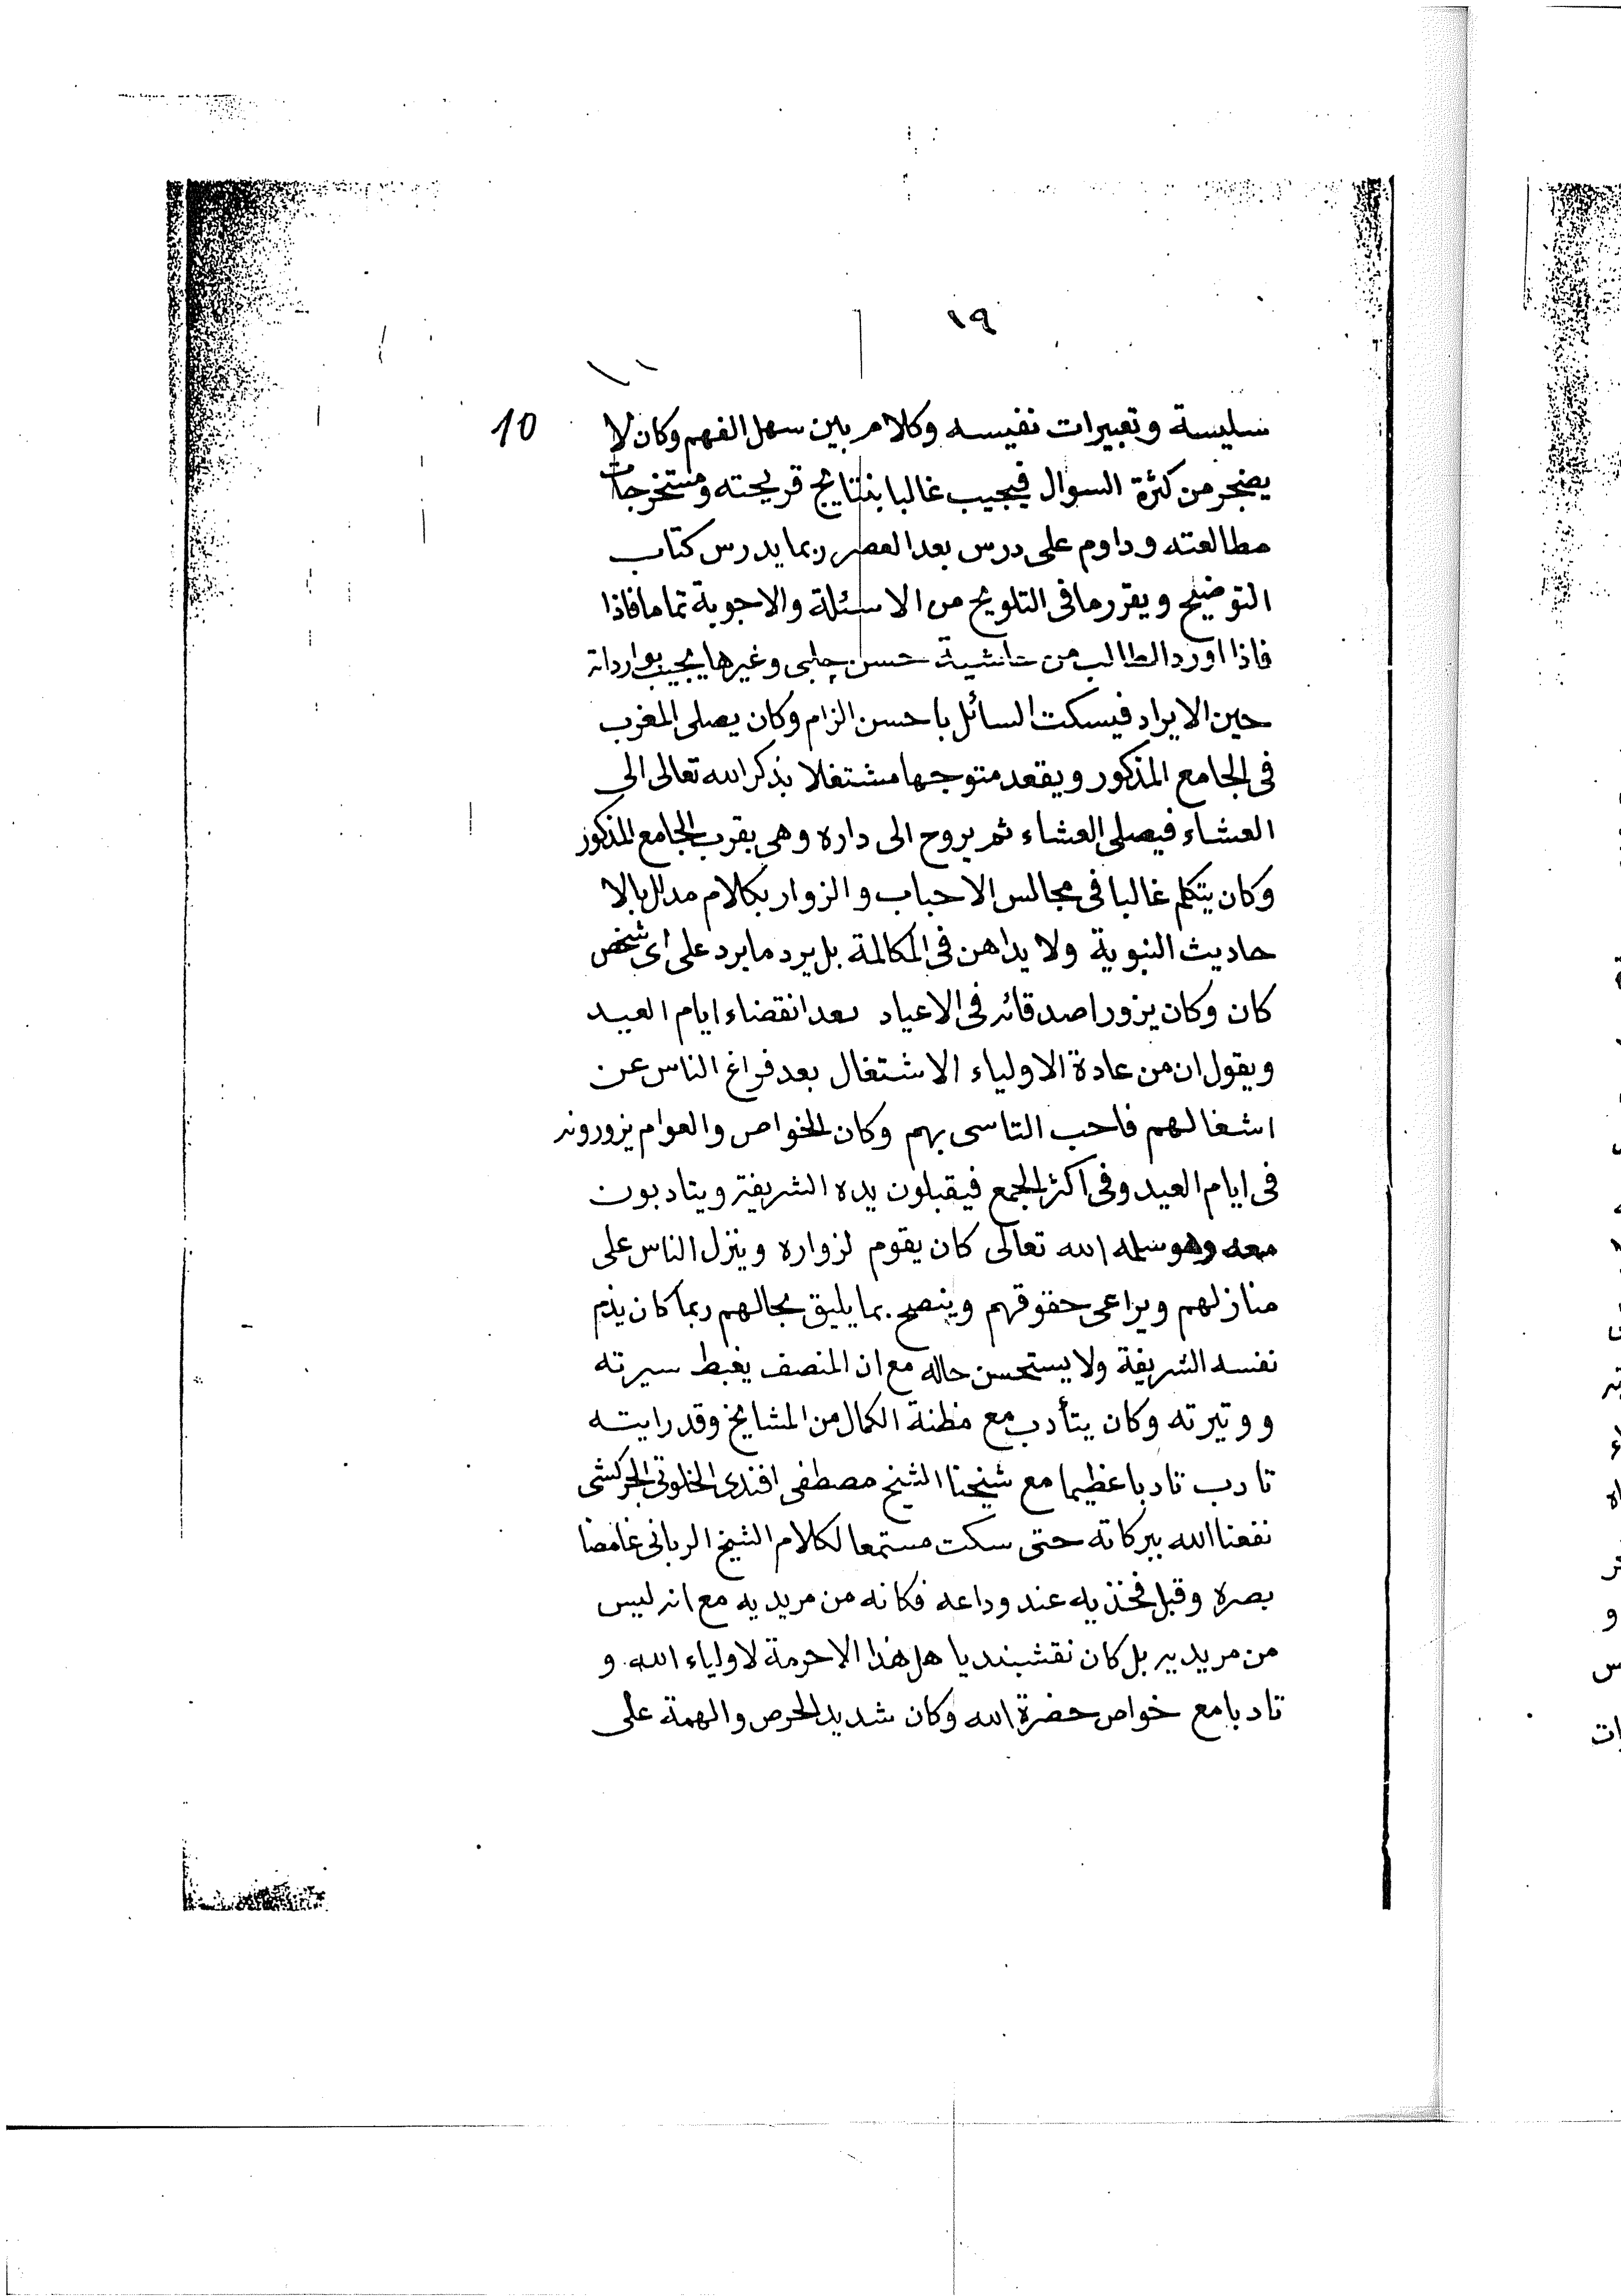 ١٩
10
سليسة وتعبيرات نفيسه وكلام بين سهل الفهم وكان لا
يضجر من كثرة السوال فيجيب غالبا بنتايج قريحته ومستخرجات
مطالعته وداوم على درس بعد العصر ربما يدرس كتاب
التوضيح ويقرر ما فى التلويح من الاسئلة والاجوبة تماما فاذا
فاذا اورد الطالب من حاشية حسن چلبى وغيرها يجيب بوارداته
حين الايراد فيسكت السائل باحسن الزام وكان يصلى المغرب
فى الجامع المذكور ويقعد متوجها مشتغلا بذكر الله تعالى الى
العشاء فيصلى العشاء ثم يروح الى داره وهى بقرب الجامع المذكور
وكان يتكلم غالبا فى مجالس الاحباب والزوار بكلام مدلل بالا
حاديث النبوية ولا يداهن فى المكالمة بل يرد ما يرد على اى شخص
كان وكان يزور اصدقائه فى الاعياد بعد انقضاء ايام العيد
ويقول ان من عادة الاولياء الاشتغال بعد فراغ الناس عن
اشغالهم فاحب التاسى بهم وكان الخواص والعوام يزورونه
فى ايام العيد وفى اكثر الجمع فيقبلون يده الشريفة ويتادبون
معه وهو سلمه الله تعالى كان يقوم لزواره وينزل الناس على
منازلهم ويراعى حقوقهم وينصح بما يليق بحالهم ربما كان يذم
نفسه الشريفة ولا يستحسن حاله مع ان المنصف يغبط سيرته
ووتيرته وكان يتأدب مع مظنة الكمال من المشايخ وقد رايته
تادب تادبا عظيما مع شيخنا الشيخ مصطفى افندى الخلوتى الجركشى
نفعنا الله ببركاته حتى سكت مستمعا لكلام الشيخ الربانى غامضا
بصره وقبل فخذيه عند وداعه فكانه من مريديه مع انه ليس
من مريديه بل كان نقشبنديا هل هذا الا حرمة لاولياء الله و
تادبا مع خواص حضرة الله وكان شديد الحرص والهمة على